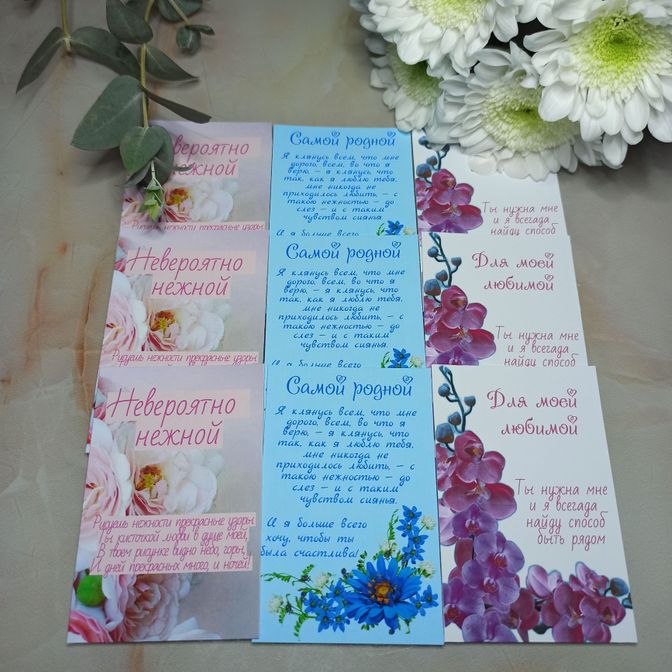 Невероятно
нежной
Рисуешь нежности прекрасные узоры
Самой родной
Я клянусь всем, что мне
дорого, всем, во что я
верю, – я клянусь, что
так, как я люблю тебя,
мне никогда не
приходилось любить, – с
такою нежностью – до
слез – и с таким
чувством сиянья.
И я больше всего
Ты нужна мне
и я всегада
найду способ
Невероятно
нежной
Рисуешь нежности прекрасные узоры
Самой родной
Я клянусь всем, что мне
дорого, всем, во что я
верю, – я клянусь, что
так, как я люблю тебя,
мне никогда не
приходилось любить, – с
такою нежностью – до
слез – и с таким
чувством сиянья.
И я больше всего
Для моей
любимой
Ты нужна мне
и я всегада
найду способ
Невероятно
нежной
Рисуешь нежности прекрасные узоры
Ты кисточкой любви в душе моей,
В твоем рисунке видно небо, горы,
И дней прекрасных много, и ночей!
Самой родной
Я клянусь всем, что мне
дорого, всем, во что я
верю, – я клянусь, что
так, как я люблю тебя,
мне никогда не
приходилось любить, – с
такою нежностью – до
слез – и с таким
чувством сиянья.
И я больше всего
хочу, чтобы ты
была счастлива!
Для моей
любимой
Ты нужна мне
и я всегада
найду способ
быть рядом